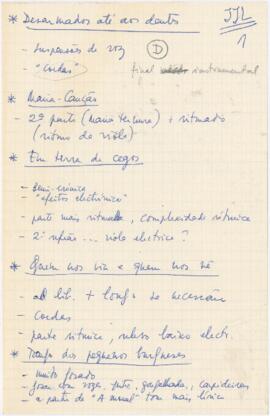 * Desarmados até aos dentes
JJL
1
- Suspensões de voz
D
- "Cordas"
final instrumental
* Maria-Canção
- 2ª parte (menos ternura) + ritmado
(ritmo de viola)
* Em terra de cegos
- Semi-irónico
- "efeitos electrónicos"
- parte mais ritmada, complexidade rítmica
- 2º refrão ... viola electrica?
* Quem nos viu e quem nos vê
- ad lib. + longo se necessário
- Cordas
- parte rítmica, baixo electr.
* Tempo dos pequenos burgueses
- muito gozado
- gozar com vozes, gargalhadas, carpideiras
- a parte de "A moral" tom mais lírico